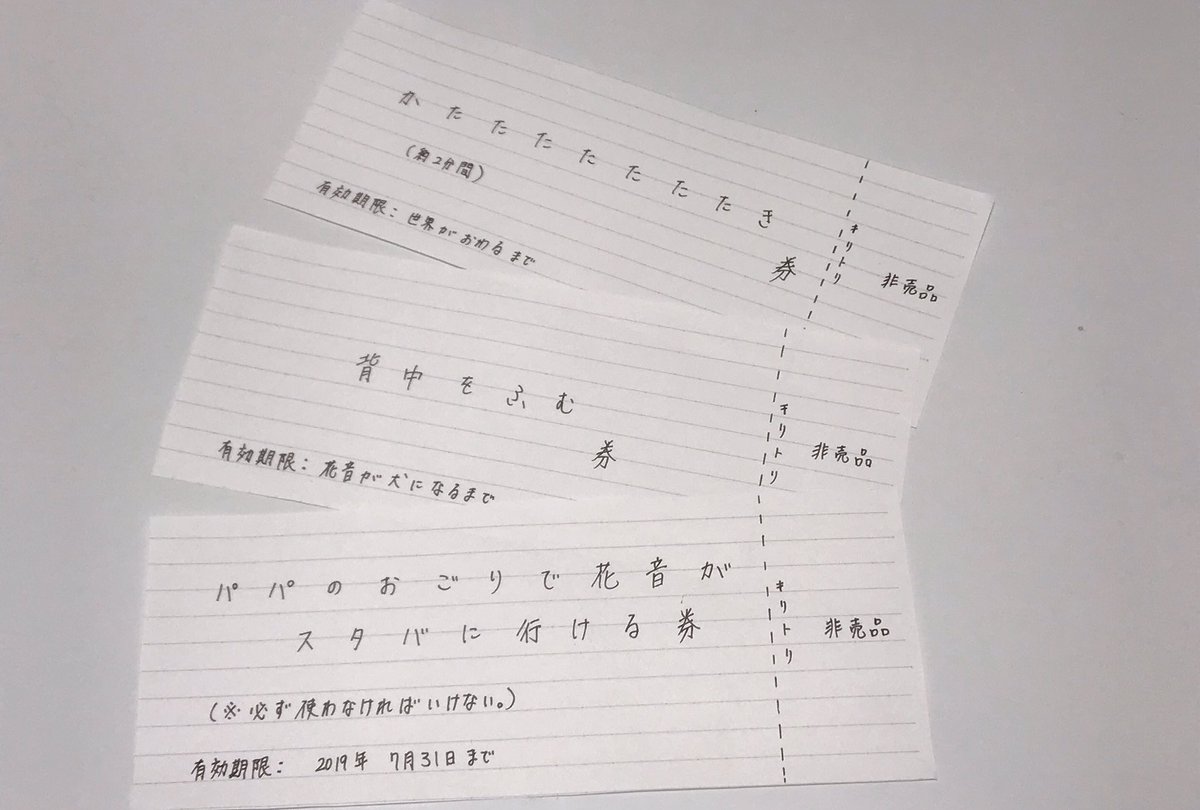 かたたたたたたたき
(約2分間)
券
有効期限：世界がおわるまで
キリトリ
非売品
背中をふむ
券
有効期限：花音が犬になるまで
キリトリ
非売品
パパのおごりで花音が
スタバに行ける券
(※必ず使わなければいけない。)
有効期限： 2019年 7月31日まで
キリトリ
非売品